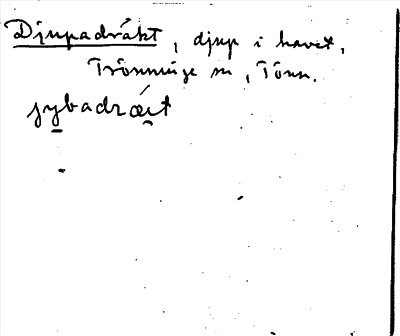 Djupadråkt, djup i havet,
Trönninge sn, Tönn.
jybadráit